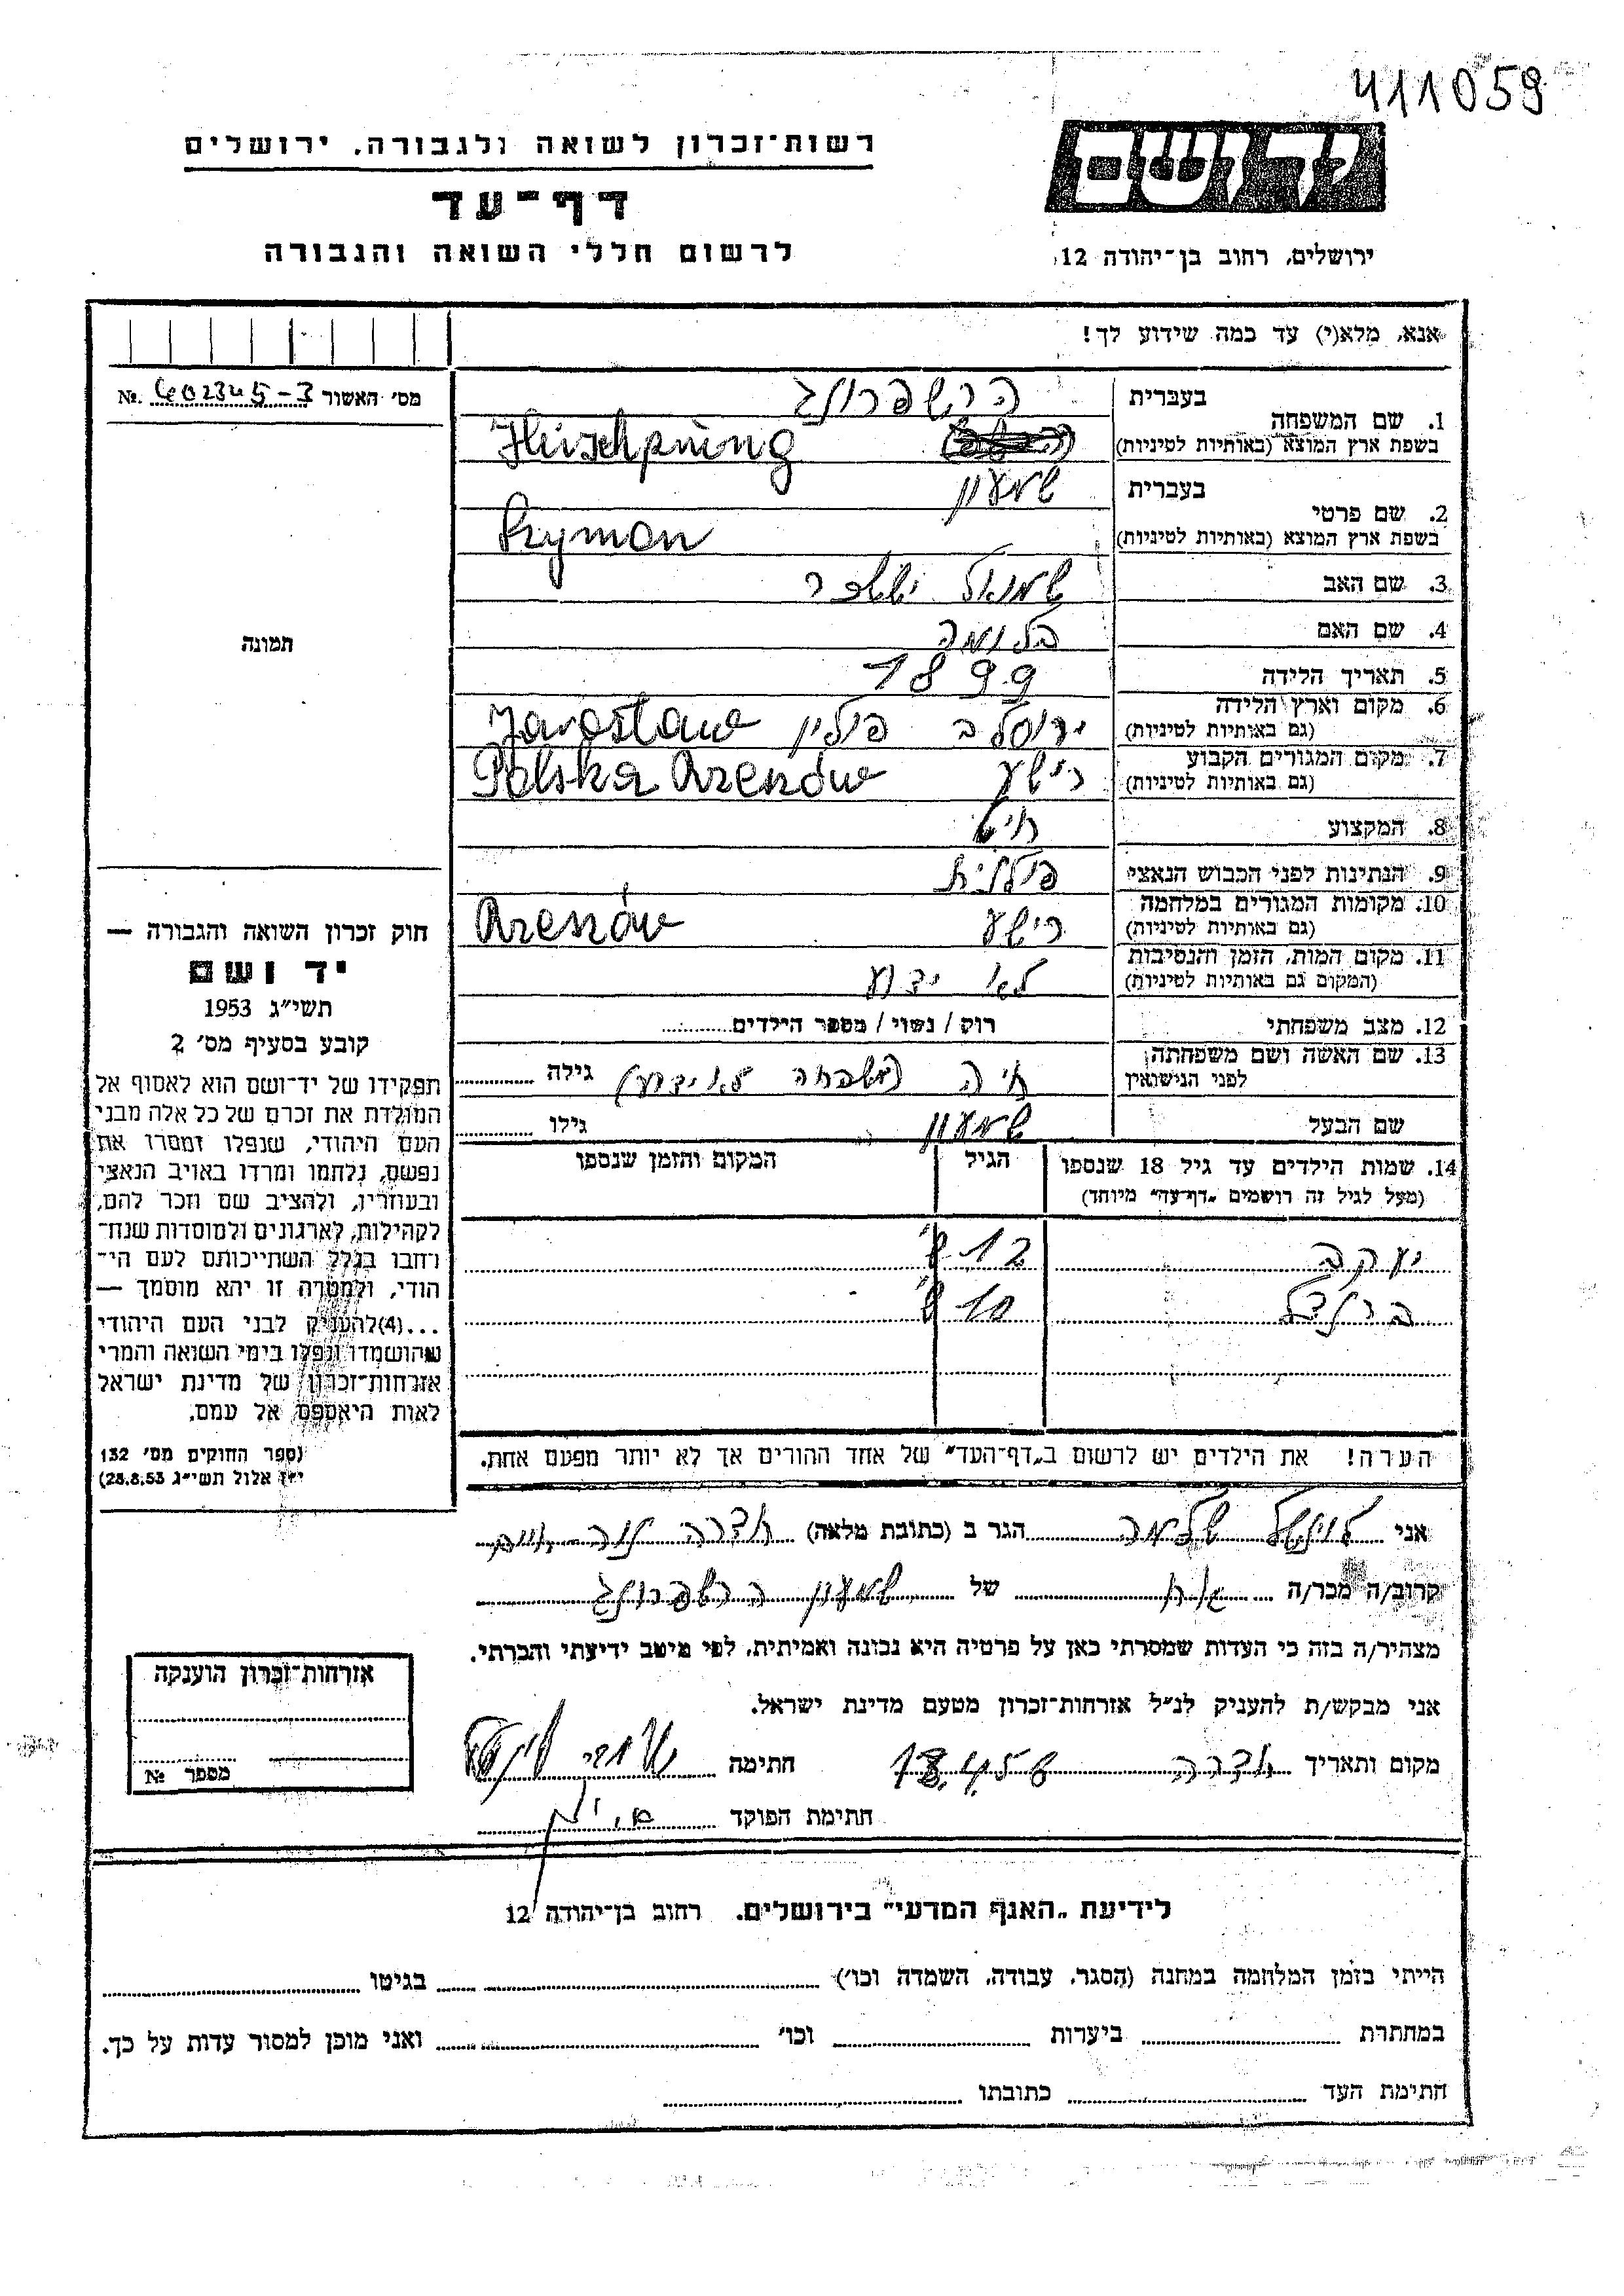 411059
יד ושם
ירושלים, רחוב בן־יהודה 12
רשות־זכרון לשואה ולגבורה, ירושלים
דף־עד
לרשום חללי השואה והגבורה
אנא, מלא(י) עד כמה שידוע לך!
מס׳ האשור 402345-3 №.
תמונה
1. שם המשפחה בעברית הרשפרונג
בשפת ארץ המוצא (באותיות לטיניות) Hirschprung
2. שם פרטי בעברית שמעון
בשפת ארץ המוצא (באותיות לטיניות) Szymon
3. שם האב שמואל יששכר
4. שם האם בלומה
5. תאריך הלידה 1899
6. מקום וארץ הלידה ירוסלב פולין Jarosław
(גם באותיות לטיניות)
7. מקום המגורים הקבוע רישע Polska Rzeszów
(גם באותיות לטיניות)
8. המקצוע חיט
9. הנתינות לפני הכבוש הנאצי פולנית
10. מקומות המגורים במלחמה רישע Rzeszów
(גם באותיות לטיניות)
11. מקום המות, הזמן והנסיבות לא ידוע
(המקום גם באותיות לטיניות)
12. מצב משפחתי רווק / נשוי / מספר הילדים
13. שם האשה ושם משפחתה חיה (משפחה לא ידוע) גילה
לפני הנישואין
שם הבעל שמעון גילו
14. שמות הילדים עד גיל 18 שנספו הגיל המקום והזמן שנספו
(מעל לגיל זה רושמים „דף־עד״ מיוחד)
יעקב 12 ש׳
ברנדל 10 ש׳
הערה! את הילדים יש לרשום ב„דף־העד״ של אחד ההורים אך לא יותר מפעם אחת.
חוק זכרון השואה והגבורה —
יד ושם
תשי״ג 1953
קובע בסעיף מס׳ 2
תפקידו של יד־ושם הוא לאסוף אל
המולדת את זכרם של כל אלה מבני
העם היהודי, שנפלו ומסרו את
נפשם, נלחמו ומרדו באויב הנאצי
ובעוזריו, ולהציב שם וזכר להם,
לקהילות, לארגונים ולמוסדות שנח־
רבו בגלל השתייכותם לעם הי־
הודי, ולמטרה זו יהא מוסמך —
...(4) להעניק לבני העם היהודי
שהושמדו ונפלו בימי השואה והמרי
אזרחות־זכרון של מדינת ישראל
לאות היאספם אל עמם.
(ספר החוקים מס׳ 132
י״ז אלול תשי״ג 28.8.53)
אני שלמה הגר ב (כתובת מלאה) חדרה
קרוב/ה מכר/ה של שמעון הרשפרונג
מצהיר/ה בזה כי העדות שמסרתי כאן על פרטיה היא נכונה ואמיתית, לפי מיטב ידיעתי והכרתי.
אני מבקש/ת להעניק לנ״ל אזרחות־זכרון מטעם מדינת ישראל.
מקום ותאריך חדרה 18.4.56 חתימה
חתימת הפוקד
אזרחות־זכרון הוענקה
מספר №
לידיעת „האגף המדעי״ בירושלים. רחוב בן־יהודה 12
הייתי בזמן המלחמה במחנה (הסגר, עבודה, השמדה וכו׳) בגיטו
במחתרת ביערות וכו׳ ואני מוכן למסור עדות על כך.
חתימת העד כתובתו